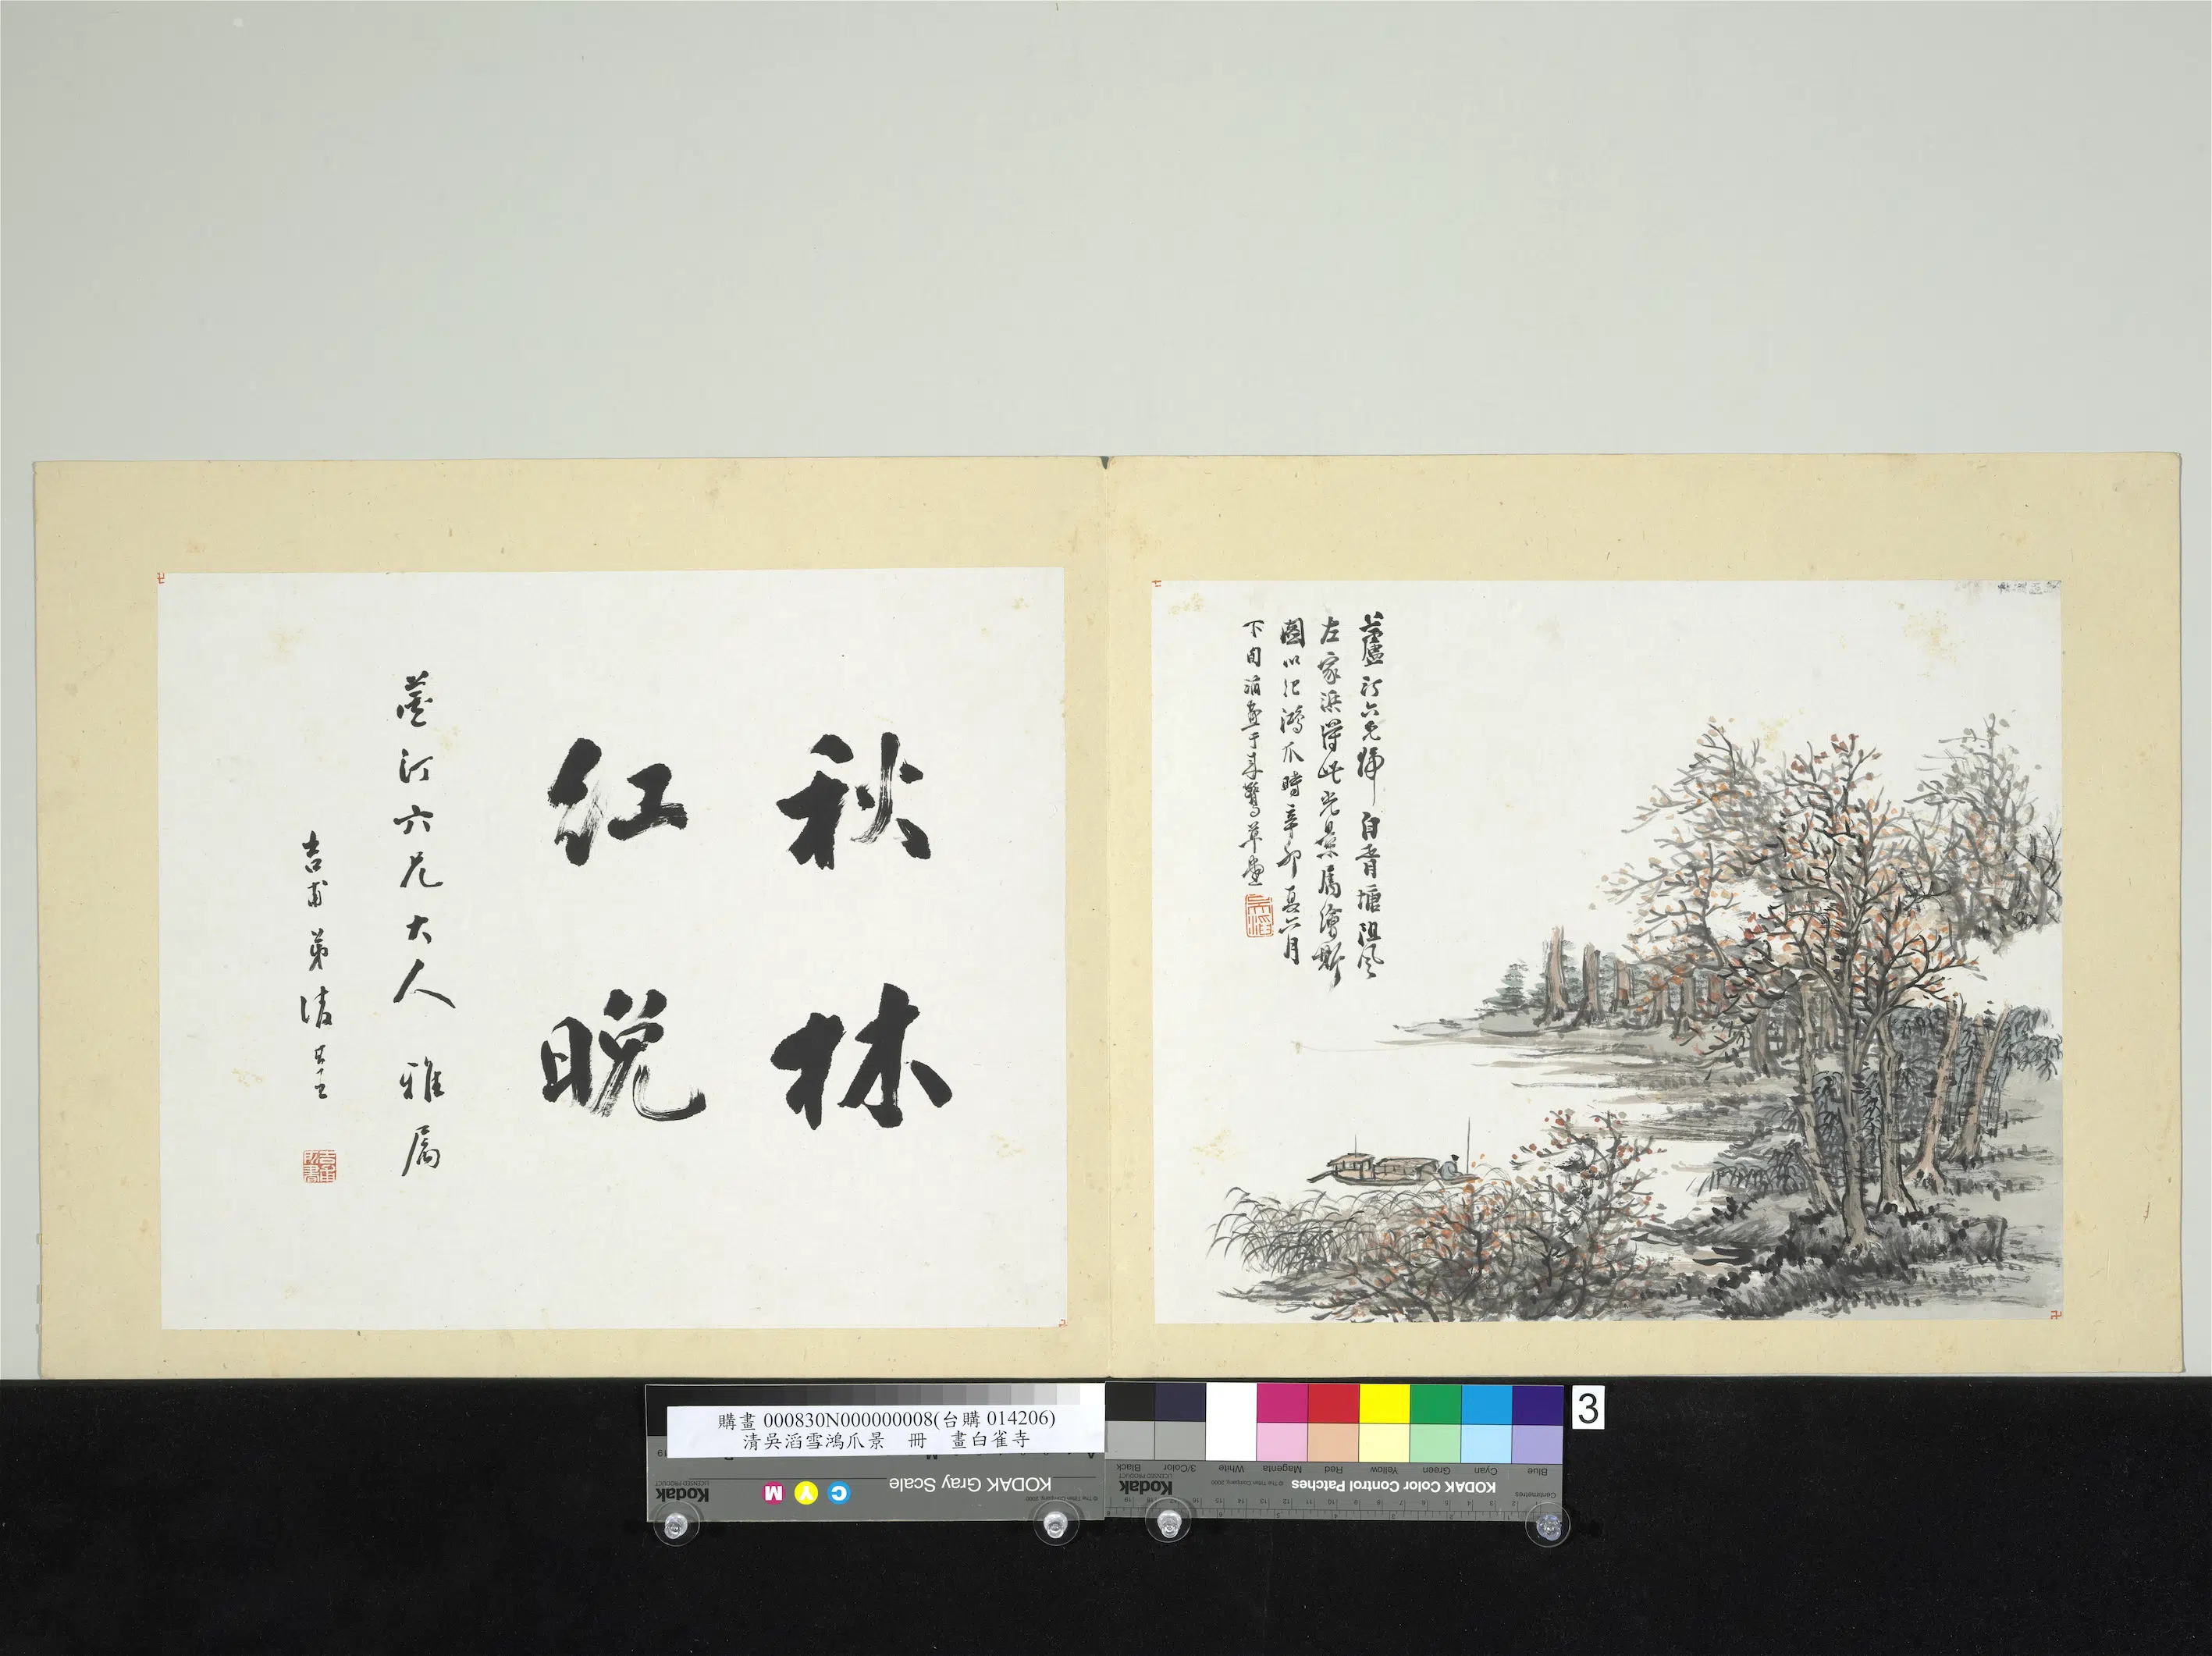 蘆汀六兄歸自胥塘阻風
左家浜得此光景屬繪斯
圖以記鴻爪時辛卯夏六月
下旬滔畫于來鷺草堂
吳滔
秋林
紅晚
蘆汀六兄大人雅屬
吉甫弟
購畫 000830N000000008(台購 014206)
清吳滔雪鴻爪景 冊 畫白雀寺
3
KODAK Gray Scale
C Y M
Kodak
LICENSED PRODUCT
KODAK Color Control Patches
Kodak
LICENSED PRODUCT
© The Tiffen Company, 2000
Blue Cyan Green Yellow Red Magenta White 3/Color Black
Centimetres